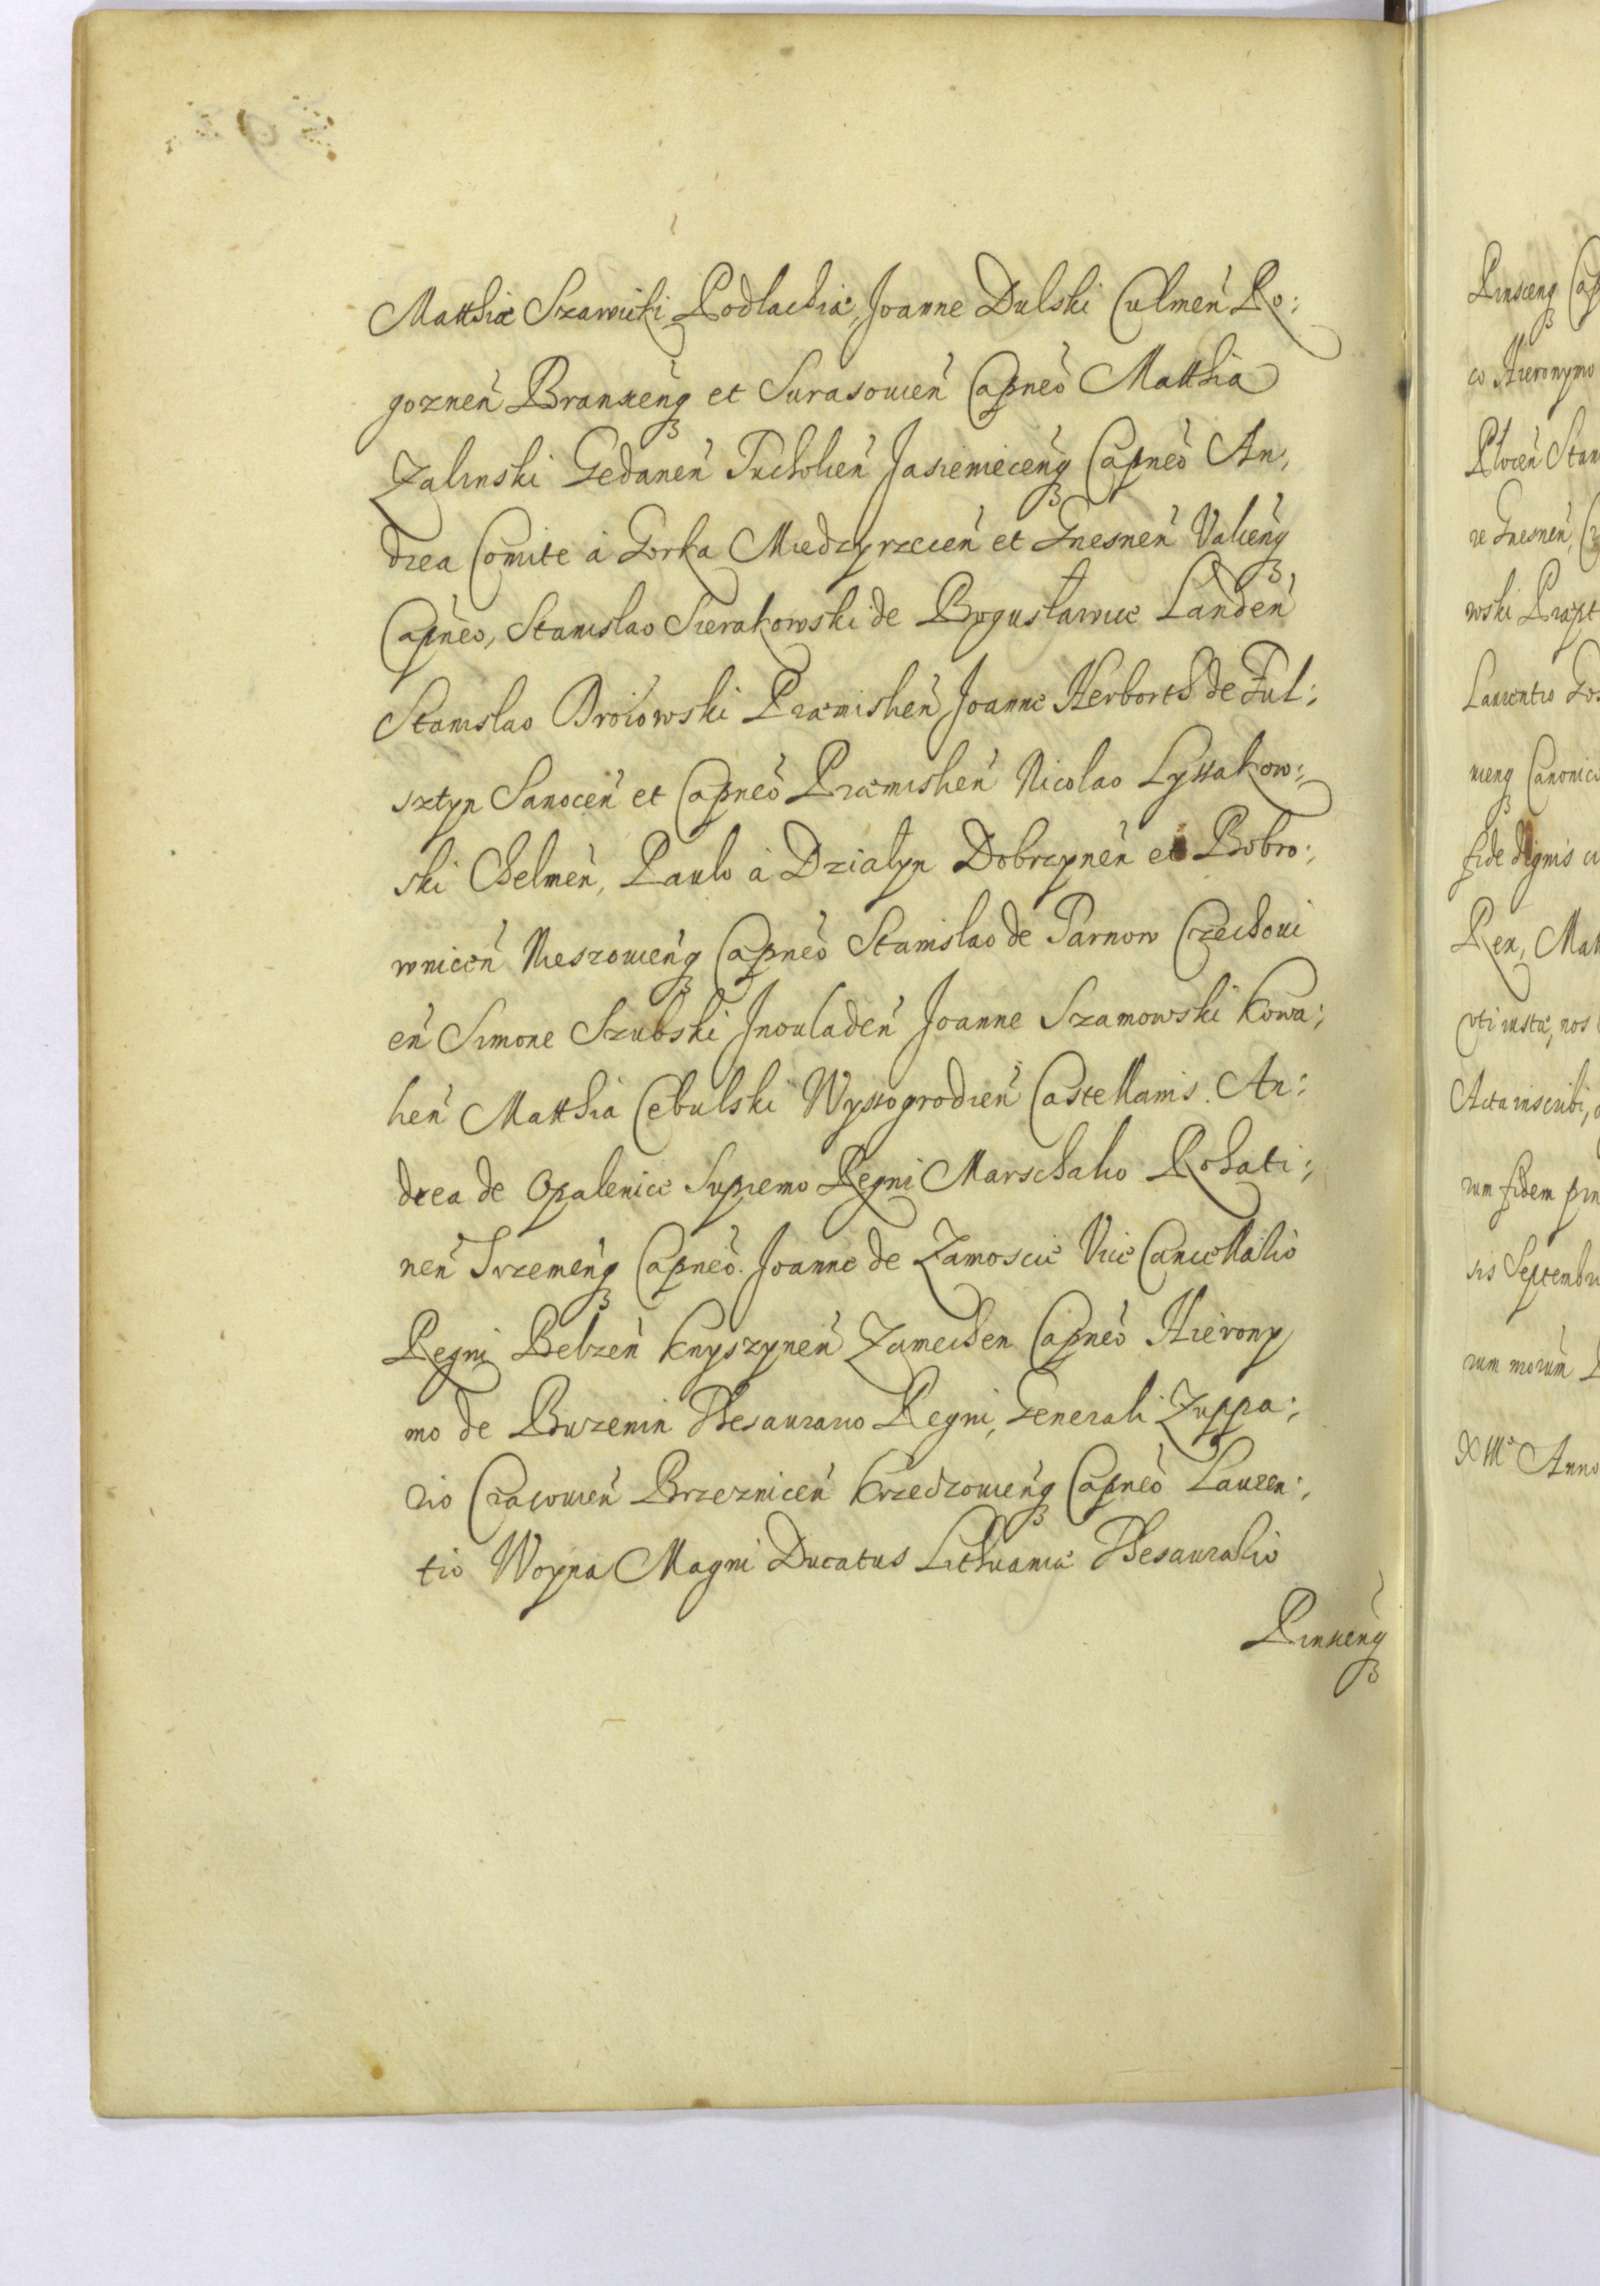 Matthiæ Szawicki Podlachiæ, Joanne Dulski Culmen̄ Ro:
goznen̄ Branscen̄q3 et Surasovien̄ Capneo Matthia
Zalinski Gedanen̄ Tucholien̄ Jasienieceñq3 Capneo An,
drea Comite à Gorka Miedzyrzecen̄ et Gnesnen̄ Valceñq3
Capneo, Stanislao Sierakowski de Bogusławice Landen̄
Stanislao Droiowski Præmislien̄ Joanne Herborth de Ful:
sztyn Sanocen̄ et Capneo Præmislien̄ Nicolao Lyssakow:
ski Chelmen̄, Paulo à Dzialyn Dobrzynen̄ et Bobro:
wnicen̄ Nieszovieñq3 Capneo Stanislao de Tarnow Czechovi
en̄ Simone Szubski Jnouladen̄ Joanne Szamowski Kowa:
lien̄ Matthia Cebulski Wyssogrodien̄ Castellanis. An:
drea de Opalenice Supremo Regni Marschalio Rohati:
nen̄ Srzemeñq3 Capneo. Joanne de Zamoscie Vice Cancellario
Regni Belzen̄ Knyszynen̄ Zamechen Capneo Hierony
mo de Buzenin Thesaurario Regni, Generali Zuppa:
rio Cracovien̄ Brzeznicen̄ Krzeczovieñq3 Capneo Lauren:
tio Woyna Magni Ducatus Lithuaniæ Thesaurario
Pinsceñq3
Pinsceñq3 Cap
co Hieronymo
Plocen̄ Stan
re Gnesnen̄, Cr
wski Præpt
Laurentio Gos
vieñq3 Canonico
fide dignis
Rex, Mat
uti iusta, nos
Acta inscribi,
rum fidem
sis Septembri
rum morum
XMo Anno